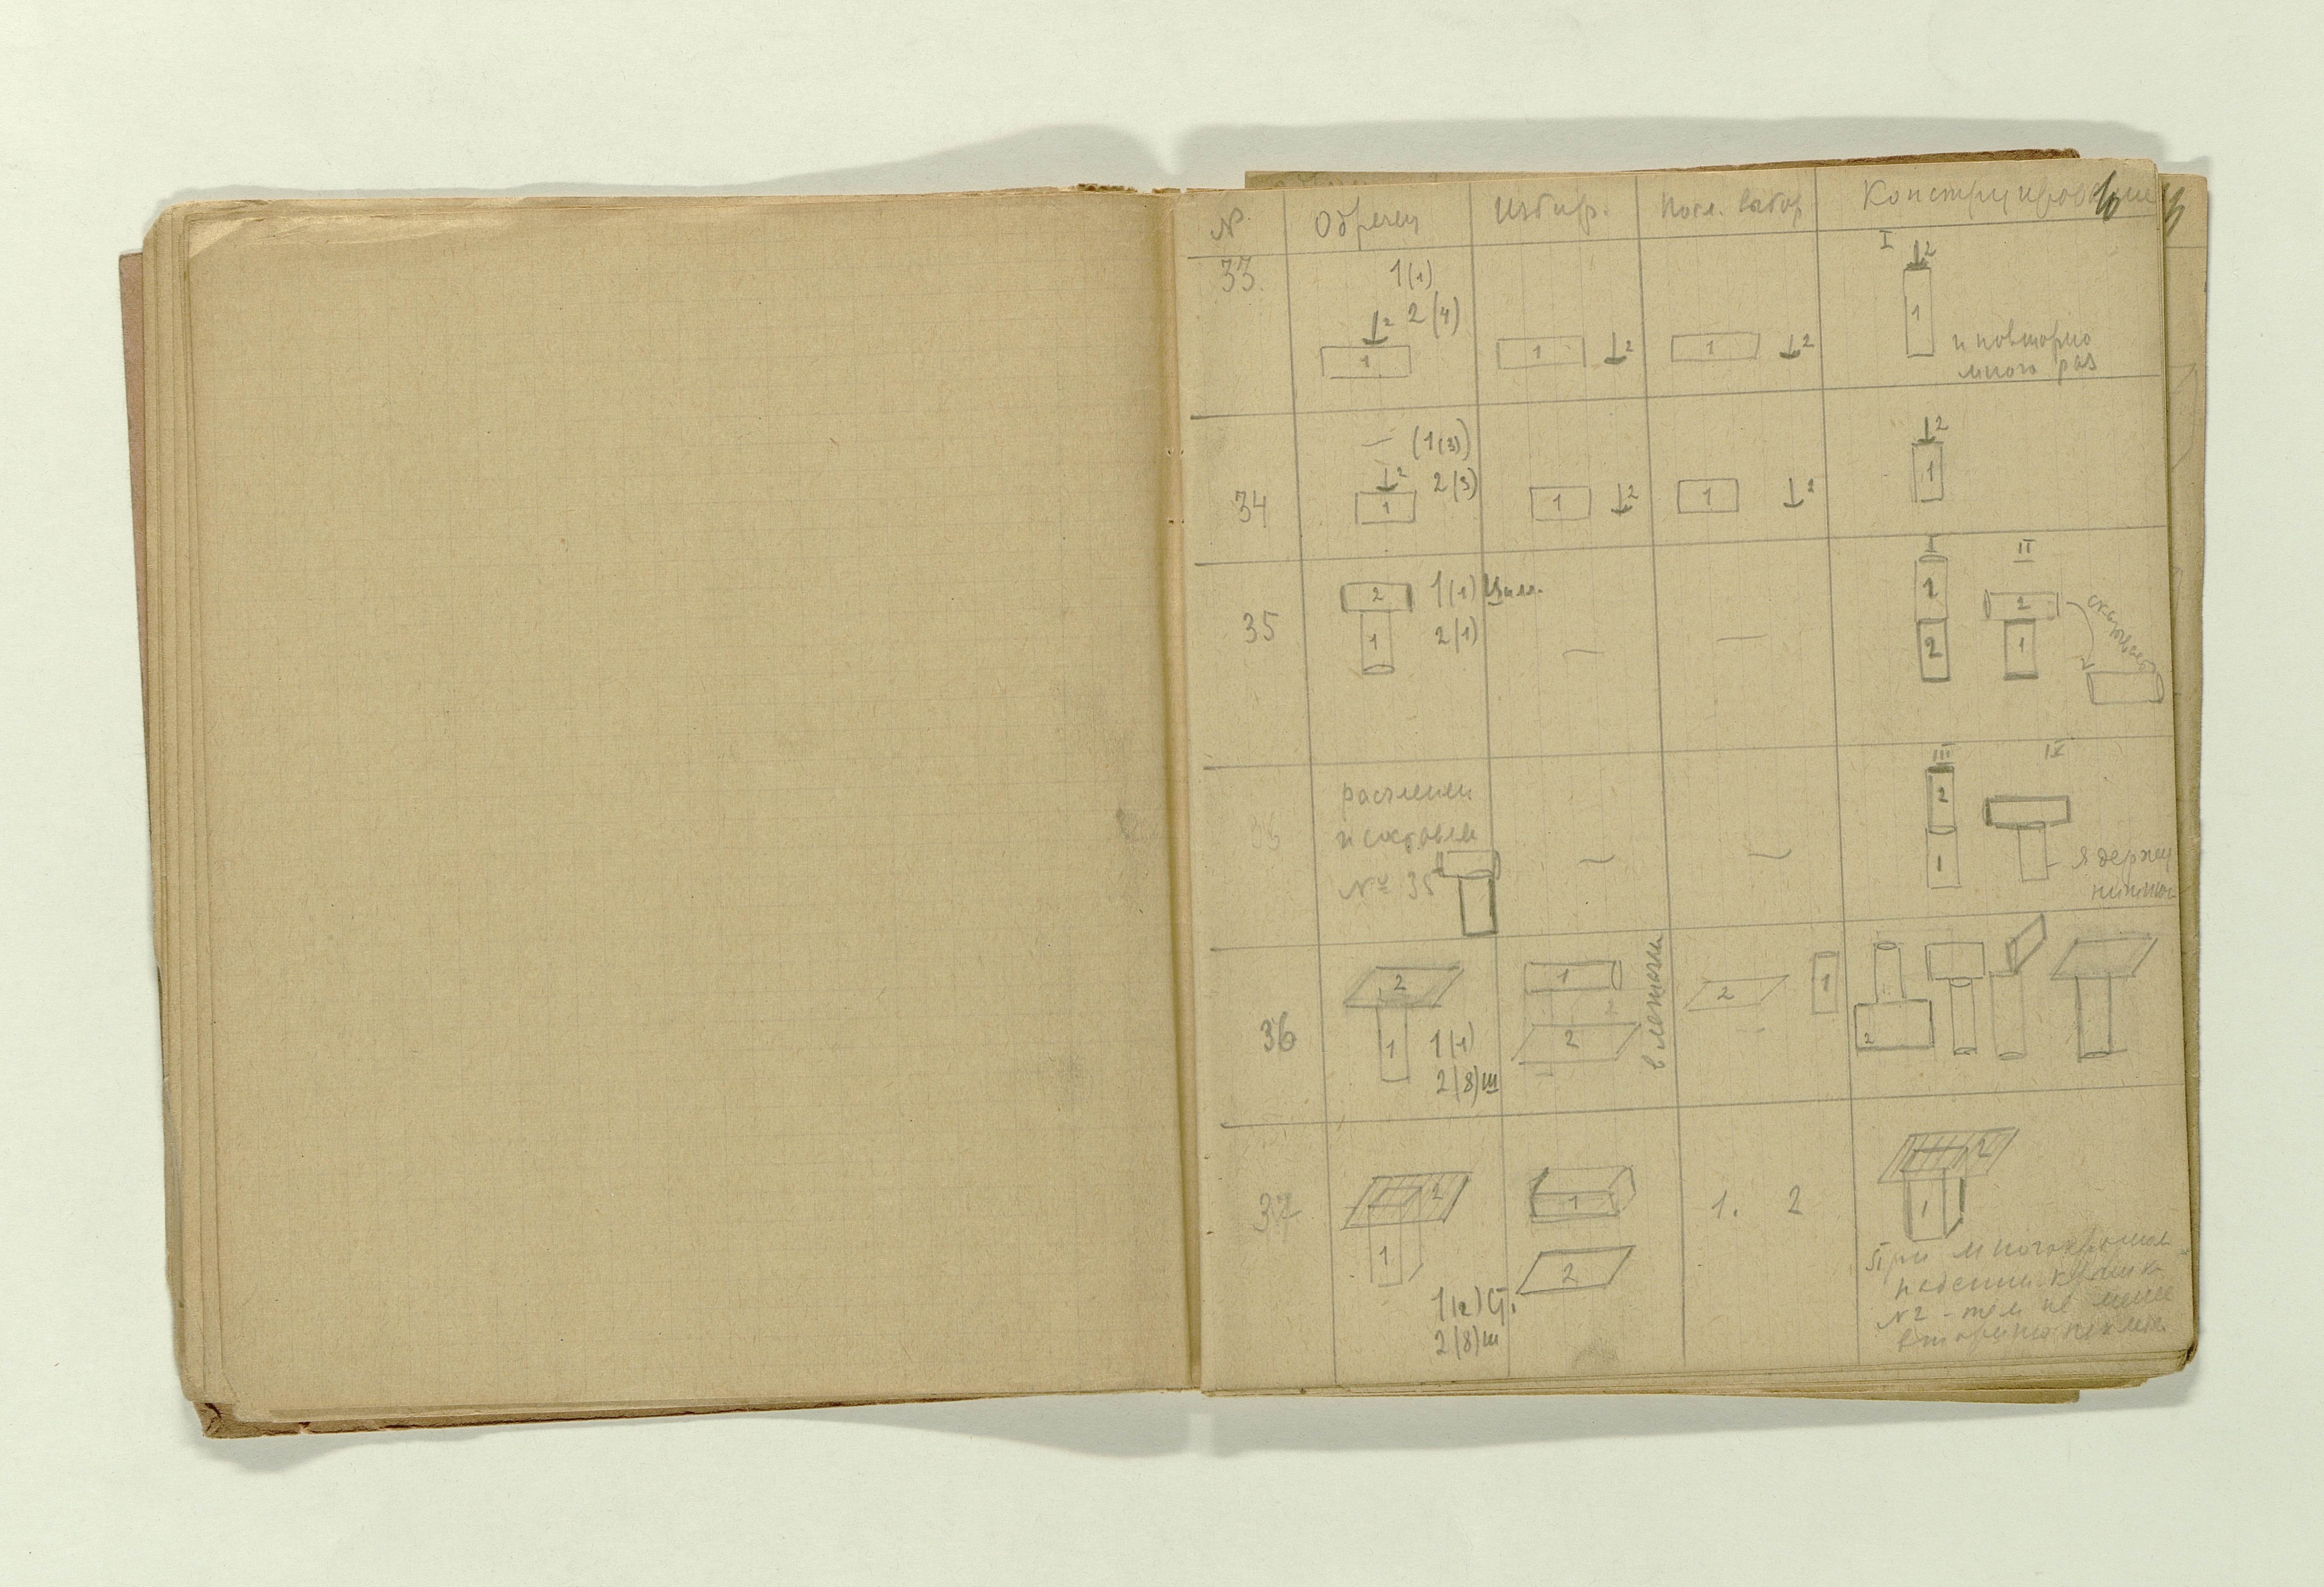 № Образец Избир. Посл. выбор Конструирование
33 1(1)
2(4)
2
1
1 2
1 2
I 2
1
и повторно
много раз
34 — (1(3))
2 2(3)
1
1 2
1 2
2
1
35 2 1(1) Цил.
1 2(1)
— —
I II
1 2
2 1
скатывает
расчленен
и составлен
№ 35
— —
III IV
2
1
я держу
36 2
1 1(1)
2(8)ш
1
2
2 1
2
37 2
1
1(2) Ст.
2(8)ш
1
2
1. 2
2
1
При многократном
падении
№2 - тем не менее